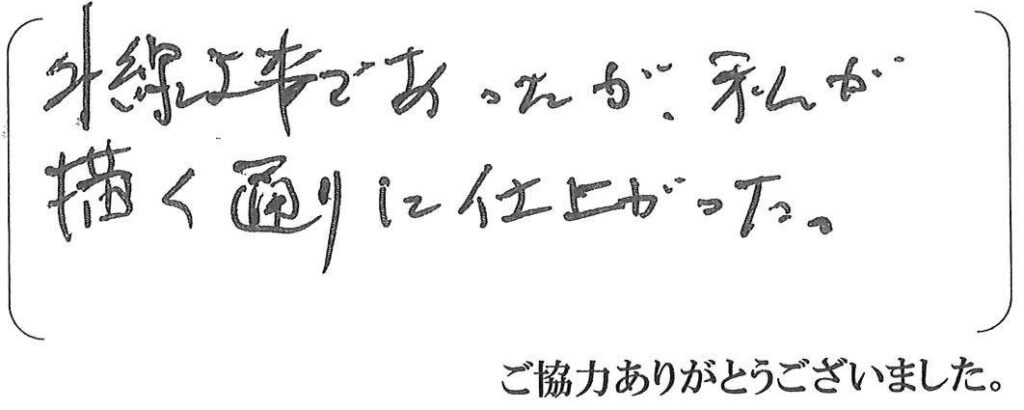 外線工事であったが、私が
描く通りに仕上がった。
ご協力ありがとうございました。